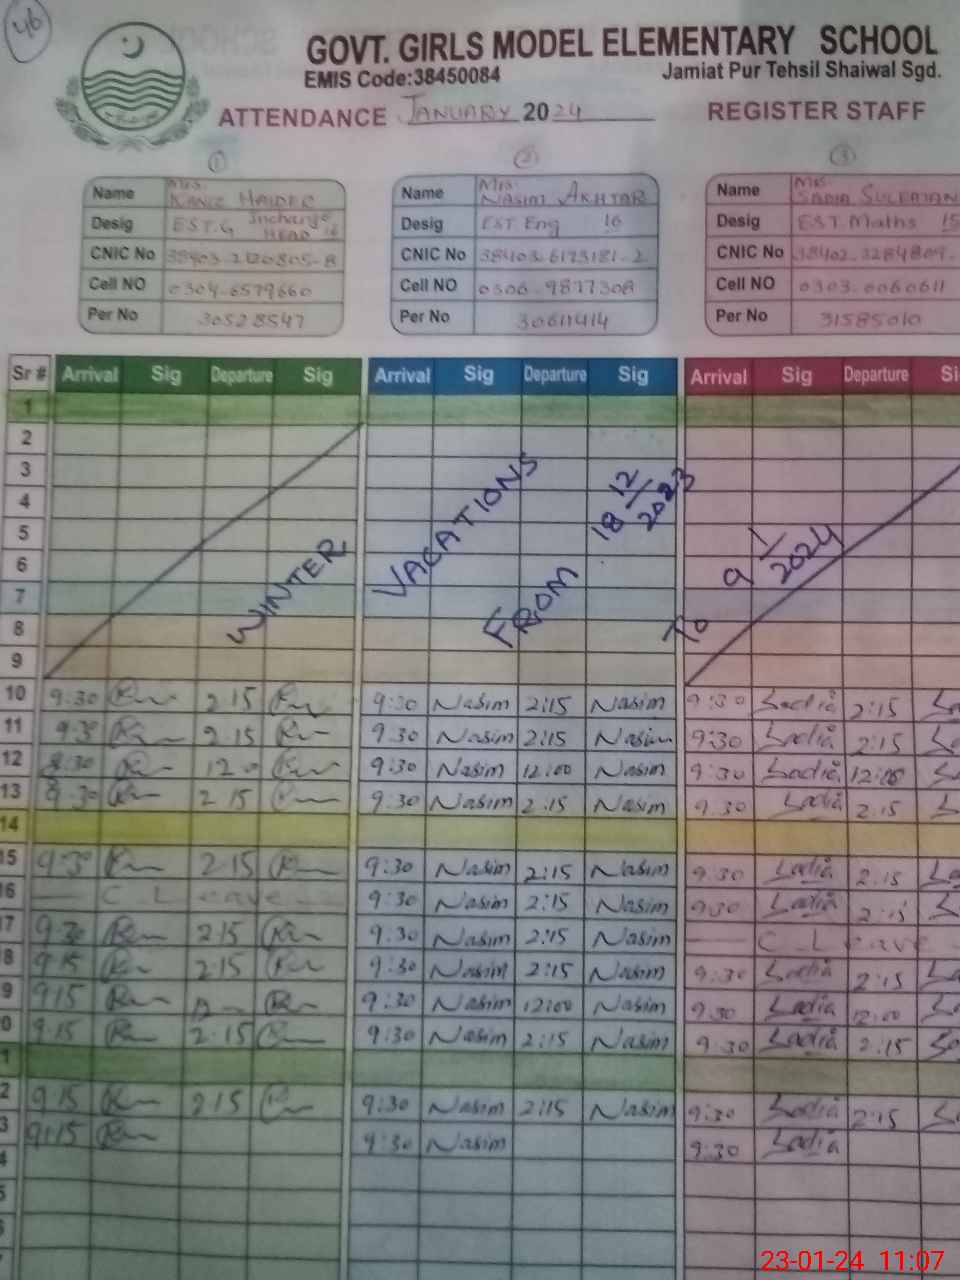 46
GOVT. GIRLS MODEL ELEMENTARY SCHOOL
EMIS Code:38450084 Jamiat Pur Tehsil Shaiwal Sgd.
ATTENDANCE JANUARY 2024 REGISTER STAFF
1 2 3
Name Mrs. KANIZ HAIDER Name Mrs. NASIM AKHTAR Name Mrs. SADIA SULEMAN
Desig EST.G Incharge HEAD 16 Desig EST Eng 16 Desig EST Maths 15
CNIC No CNIC No 38403-6173181-2 CNIC No
Cell NO 0304-6579660 Cell NO 0306-9877308 Cell NO 0303-6060611
Per No 30528547 Per No 30611414 Per No 31585010
Sr # Arrival Sig Departure Sig Arrival Sig Departure Sig Arrival Sig Departure Si
1
2
3
4
5
6
7
8
9
WINTER VACATIONS FROM 18 12/2023 To 9 1/2024
10 9:30 2 15 9:30 Nasim 2:15 Nasim 9:30 Sadia 2:15
11 9:30 2.15 9.30 Nasim 2:15 Nasim 9:30 Sadia 2:15
12 9:30 12.0 9:30 Nasim 12:00 Nasim 9:30 Sadia 12:00
13 9.30 2 15 9:30 Nasim 2:15 Nasim 9.30 Sadia 2:15
14
15 9:30 2.15 9:30 Nasim 2:15 Nasim 9:30 Sadia 2:15
6 C Leave 9:30 Nasim 2:15 Nasim 9:30 Sadia 2:15
7 9.30 2.15 9:30 Nasim 2:15 Nasim C Leave
8 9.15 2.15 9:30 Nasim 2:15 Nasim 9:30 Sadia 2:15
9 9.15 9:30 Nasim 12:00 Nasim 9:30 Sadia 12:00
0 9.15 2.15 9:30 Nasim 2:15 Nasim 9:30 Sadia 2:15
1
2 9.15 2.15 9:30 Nasim 2:15 Nasim 9:30 Sadia 2:15
3 9:15 9:30 Nasim 9:30 Sadia
4
5
6
7
23-01-24 11:07